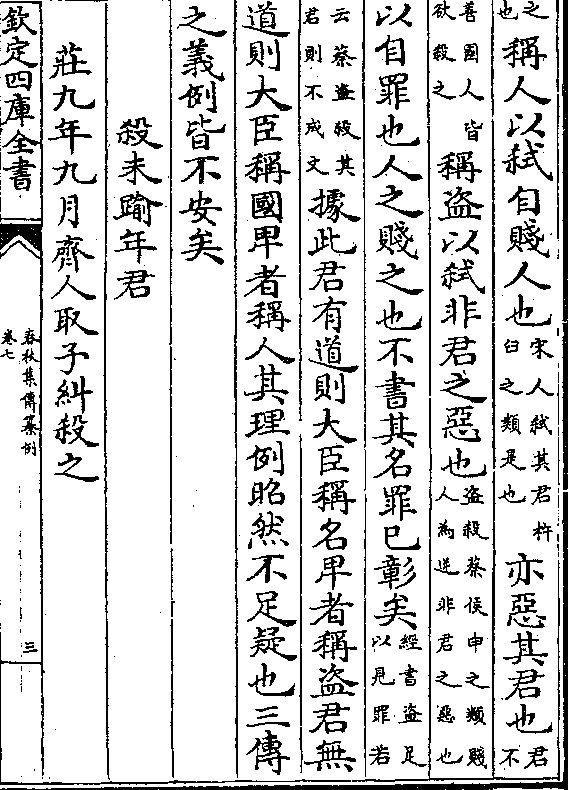 之也稱人以弑自賤人也宋人弑其君杵臼之類是也亦惡其君也君不
善國人皆欲殺之稱盜以弑非君之惡也盜殺蔡侯申之類賤人為逆非君之惡也
以自罪也人之賤之也不書其名罪已彰矣經書盜足以見罪若
云蔡盜殺其君則不成文據此君有道則大臣稱名卑者稱盜君無
道則大臣稱國卑者稱人其理例昭然不足疑也三傳
之義例皆不安矣
殺未踰年君
莊九年九月齊人取子糾殺之
欽定四庫全書
春秋集傳纂例
卷七
三